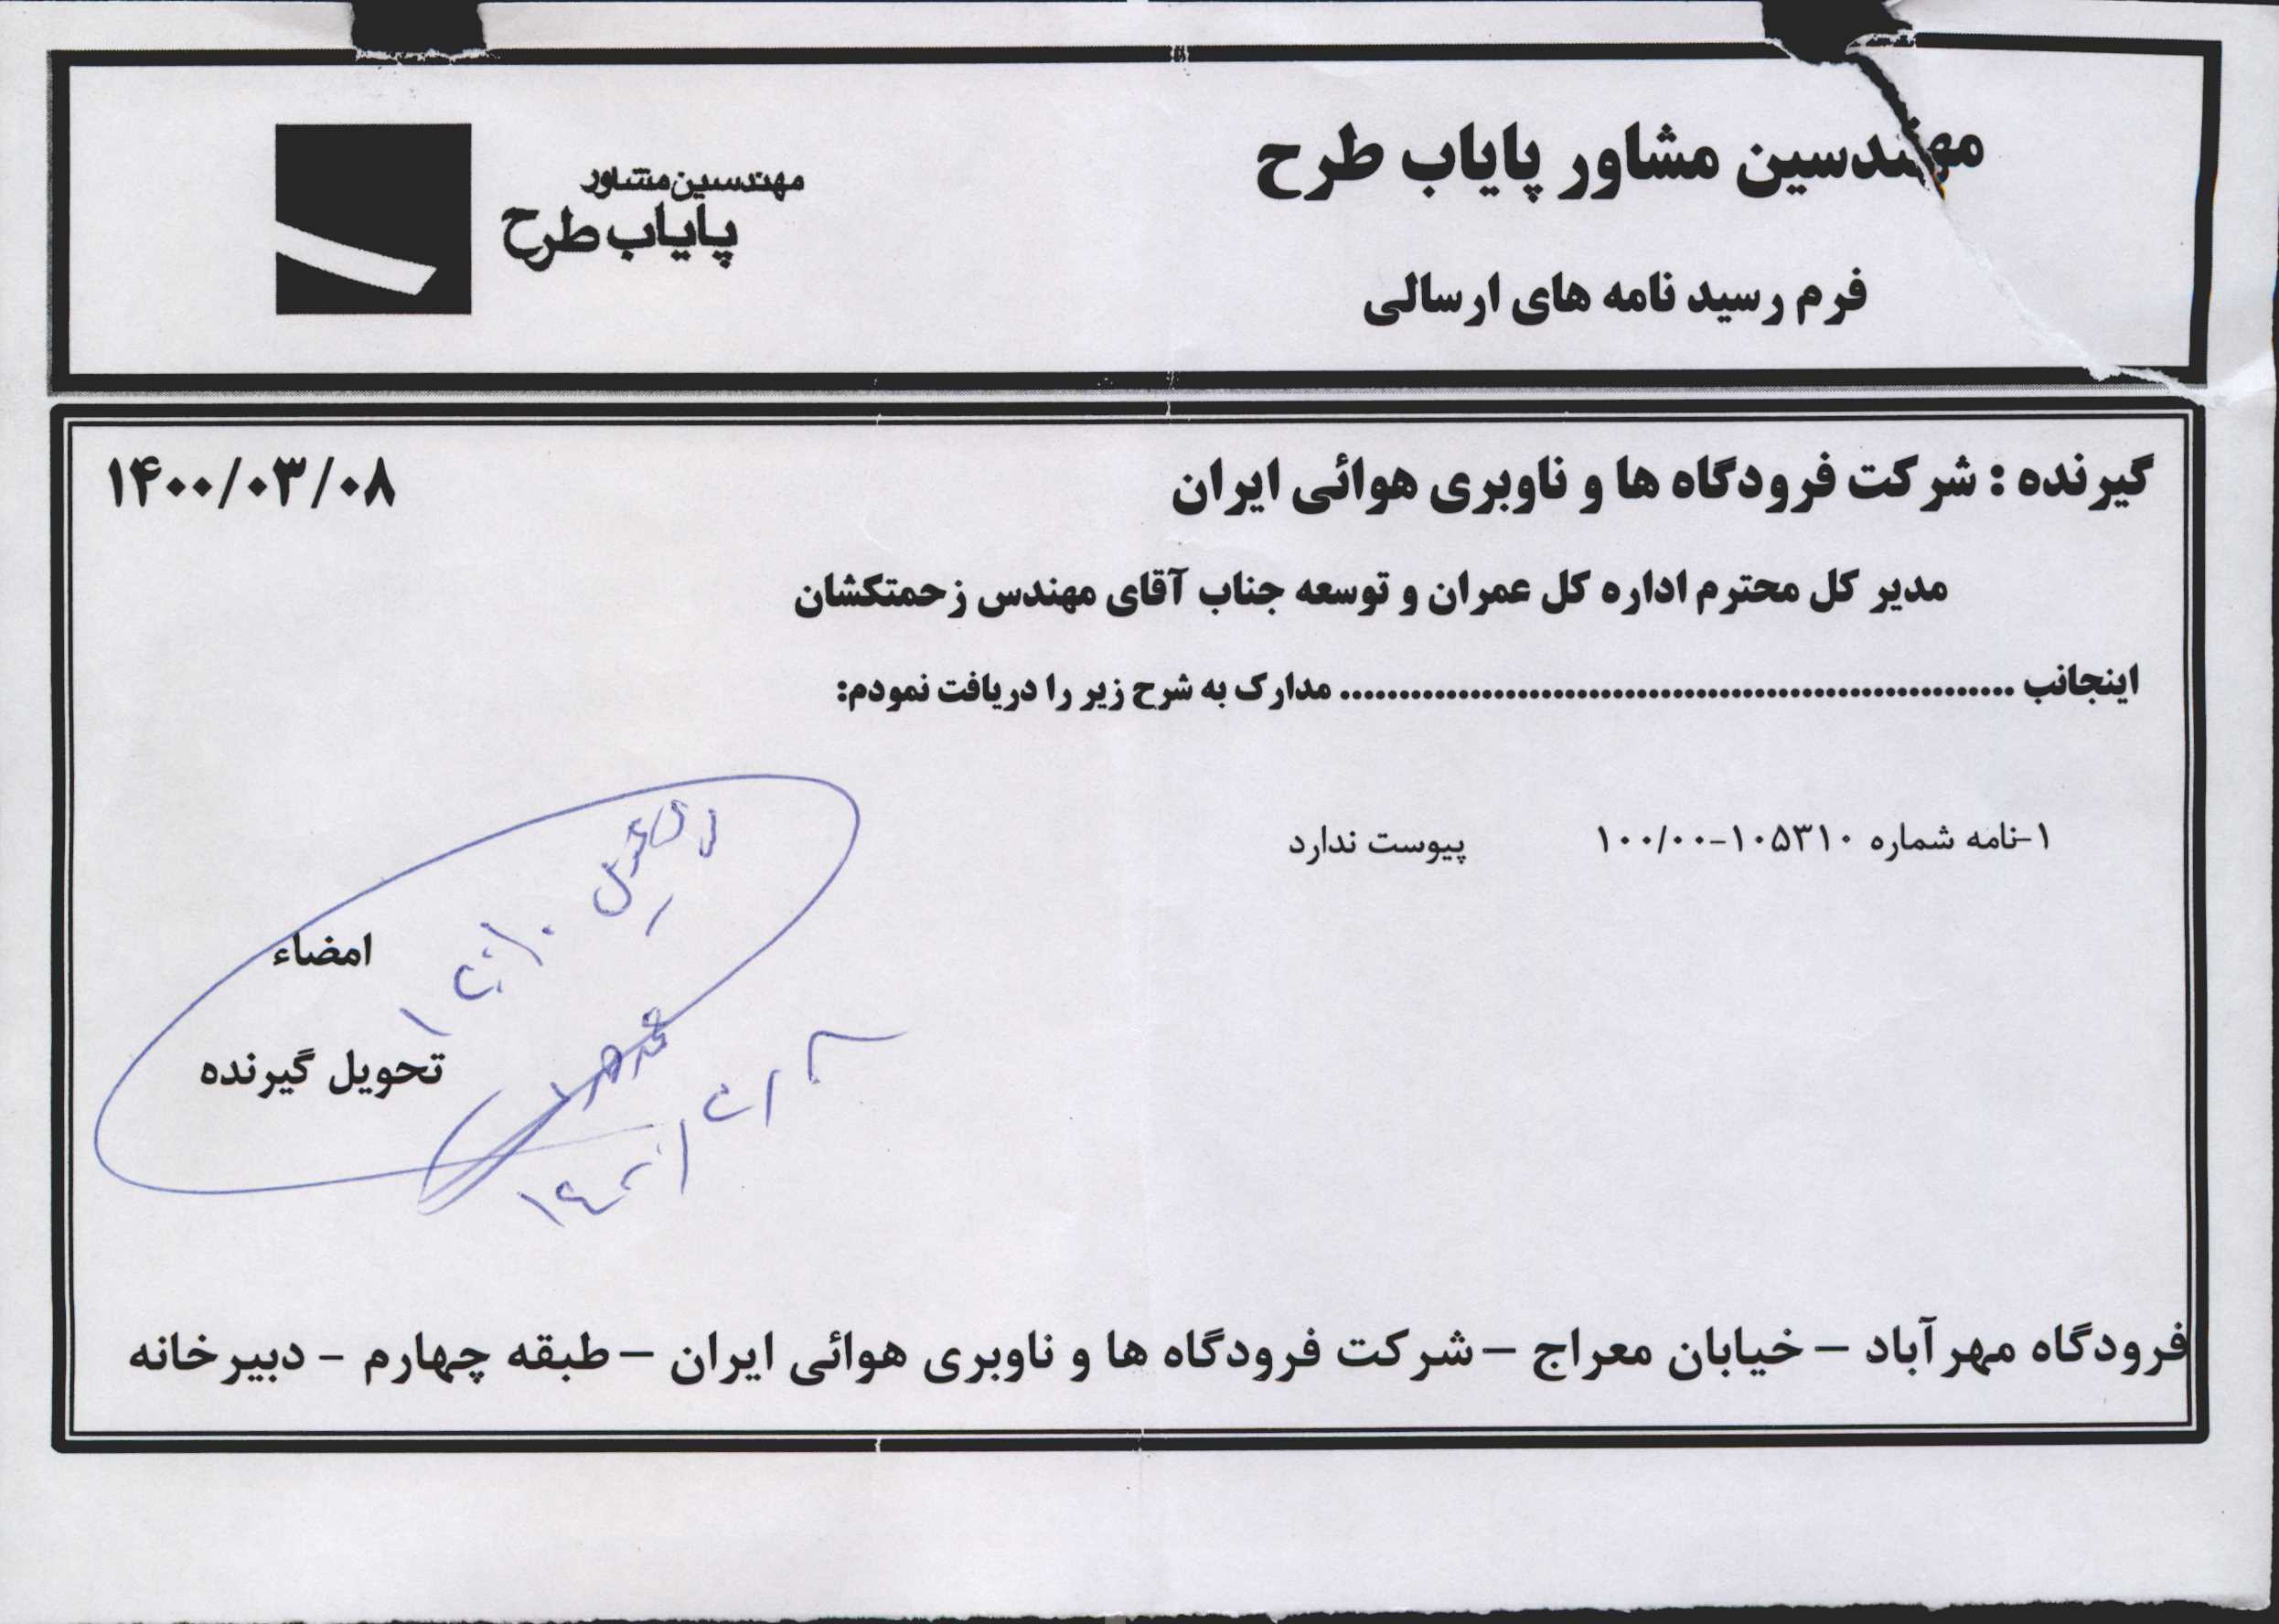 مهندسین مشاور پایاب طرح
مهندسین مشاور
پایاب طرح
فرم رسید نامه های ارسالی
گیرنده : شرکت فرودگاه ها و ناوبری هوائی ایران
۱۴۰۰/۰۳/۰۸
مدیر کل محترم اداره کل عمران و توسعه جناب آقای مهندس زحمتکشان
اینجانب ........................................................ مدارک به شرح زیر را دریافت نمودم:
۱-نامه شماره ۱۰۵۳۱۰-۱۰۰/۰۰ پیوست ندارد
امضاء
تحویل گیرنده
فرودگاه مهرآباد – خیابان معراج – شرکت فرودگاه ها و ناوبری هوائی ایران – طبقه چهارم - دبیرخانه